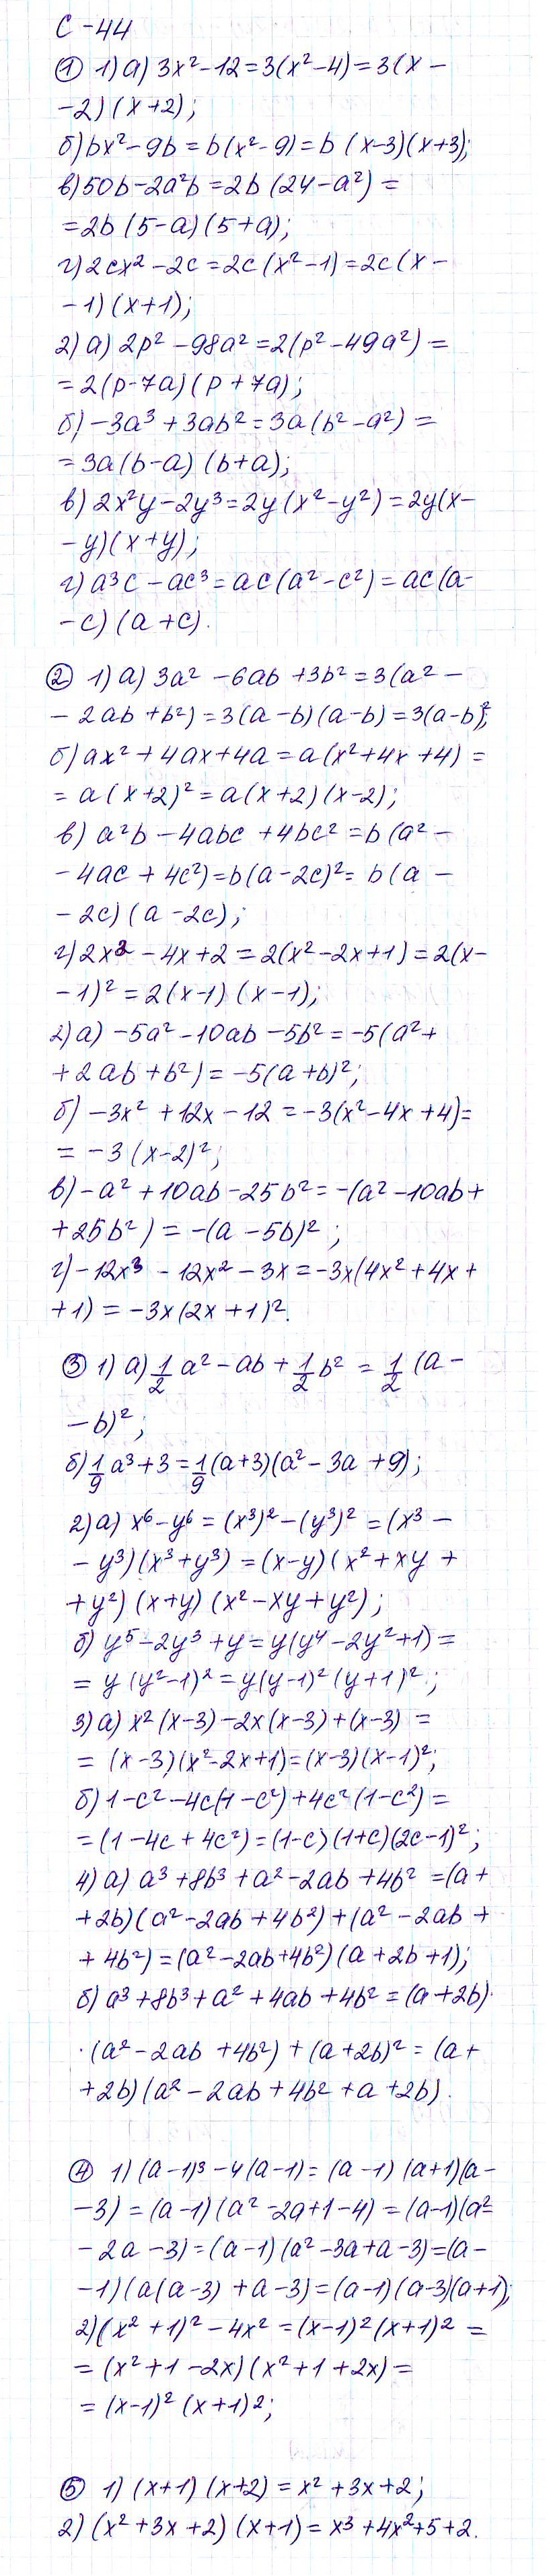 С-44
① 1) а) 3x²-12=3(x²-4)=3(x-
-2)(x+2);
б) bx²-9b=b(x²-9)=b(x-3)(x+3);
в) 50b-2a²b=2b(24-a²)=
=2b(5-a)(5+a);
г) 2cx²-2c=2c(x²-1)=2c(x-
-1)(x+1);
2) а) 2p²-98a²=2(p²-49a²)=
=2(p-7a)(p+7a);
б) -3a³+3ab²=3a(b²-a²)=
=3a(b-a)(b+a);
в) 2x²y-2y³=2y(x²-y²)=2y(x-
-y)(x+y);
г) a³c-ac³=ac(a²-c²)=ac(a-
-c)(a+c).
② 1) а) 3a²-6ab+3b²=3(a²-
-2ab+b²)=3(a-b)(a-b)=3(a-b)²;
б) ax²+4ax+4a=a(x²+4x+4)=
=a(x+2)²=a(x+2)(x-2);
в) a²b-4abc+4bc²=b(a²-
-4ac+4c²)=b(a-2c)²=b(a-
-2c)(a-2c);
г) 2x²-4x+2=2(x²-2x+1)=2(x-
-1)²=2(x-1)(x-1);
2) а) -5a²-10ab-5b²=-5(a²+
+2ab+b²)=-5(a+b)²;
б) -3x²+12x-12=-3(x²-4x+4)=
=-3(x-2)²;
в) -a²+10ab-25b²=-(a²-10ab+
+25b²)=-(a-5b)²;
г) -12x³-12x²-3x=-3x(4x²+4x+
+1)=-3x(2x+1)².
③ 1) а) 1/2 a²-ab+1/2 b²=1/2 (a-
-b)²;
б) 1/9 a³+3=1/9 (a+3)(a²-3a+9);
2) а) x⁶-y⁶=(x³)²-(y³)²=(x³-
-y³)(x³+y³)=(x-y)(x²+xy+
+y²)(x+y)(x²-xy+y²);
б) y⁵-2y³+y=y(y⁴-2y²+1)=
=y(y²-1)²=y(y-1)²(y+1)²;
3) а) x²(x-3)-2x(x-3)+(x-3)=
=(x-3)(x²-2x+1)=(x-3)(x-1)²;
б) 1-c²-4c(1-c²)+4c²(1-c²)=
=(1-4c+4c²)=(1-c)(1+c)(2c-1)²;
4) а) a³+8b³+a²-2ab+4b²=(a+
+2b)(a²-2ab+4b²)+(a²-2ab+
+4b²)=(a²-2ab+4b²)(a+2b+1);
б) a³+8b³+a²+4ab+4b²=(a+2b)·
·(a²-2ab+4b²)+(a+2b)²=(a+
+2b)(a²-2ab+4b²+a+2b).
④ 1) (a-1)³-4(a-1)=(a-1)(a+1)(a-
-3)=(a-1)(a²-2a+1-4)=(a-1)(a²-
-2a-3)=(a-1)(a²-3a+a-3)=(a-
-1)(a(a-3)+a-3)=(a-1)(a-3)(a+1);
2) (x²+1)²-4x²=(x-1)²(x+1)²=
=(x²+1-2x)(x²+1+2x)=
=(x-1)²(x+1)²;
⑤ 1) (x+1)(x+2)=x²+3x+2;
2) (x²+3x+2)(x+1)=x³+4x²+5+2.